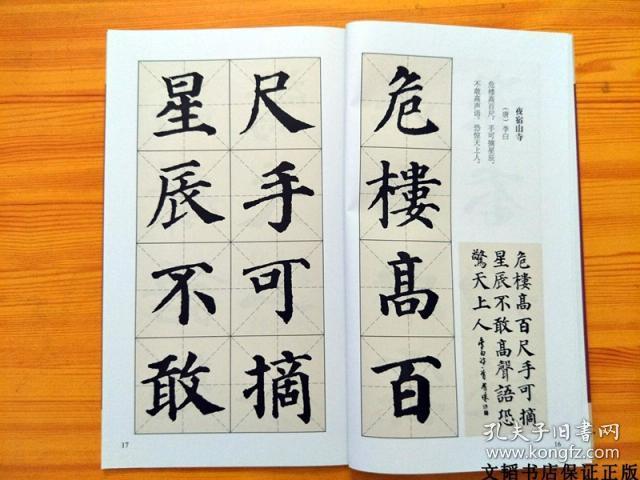 夜宿山寺
（唐）李白
危楼高百尺，手可摘星辰。
不敢高声语，恐惊天上人。
危樓高百
尺手可摘
星辰不敢
危樓高百尺手可摘
星辰不敢高聲語恐
驚天上人
16
17
孔夫子旧书网
www.kongfz.com
文韬书店保证正版